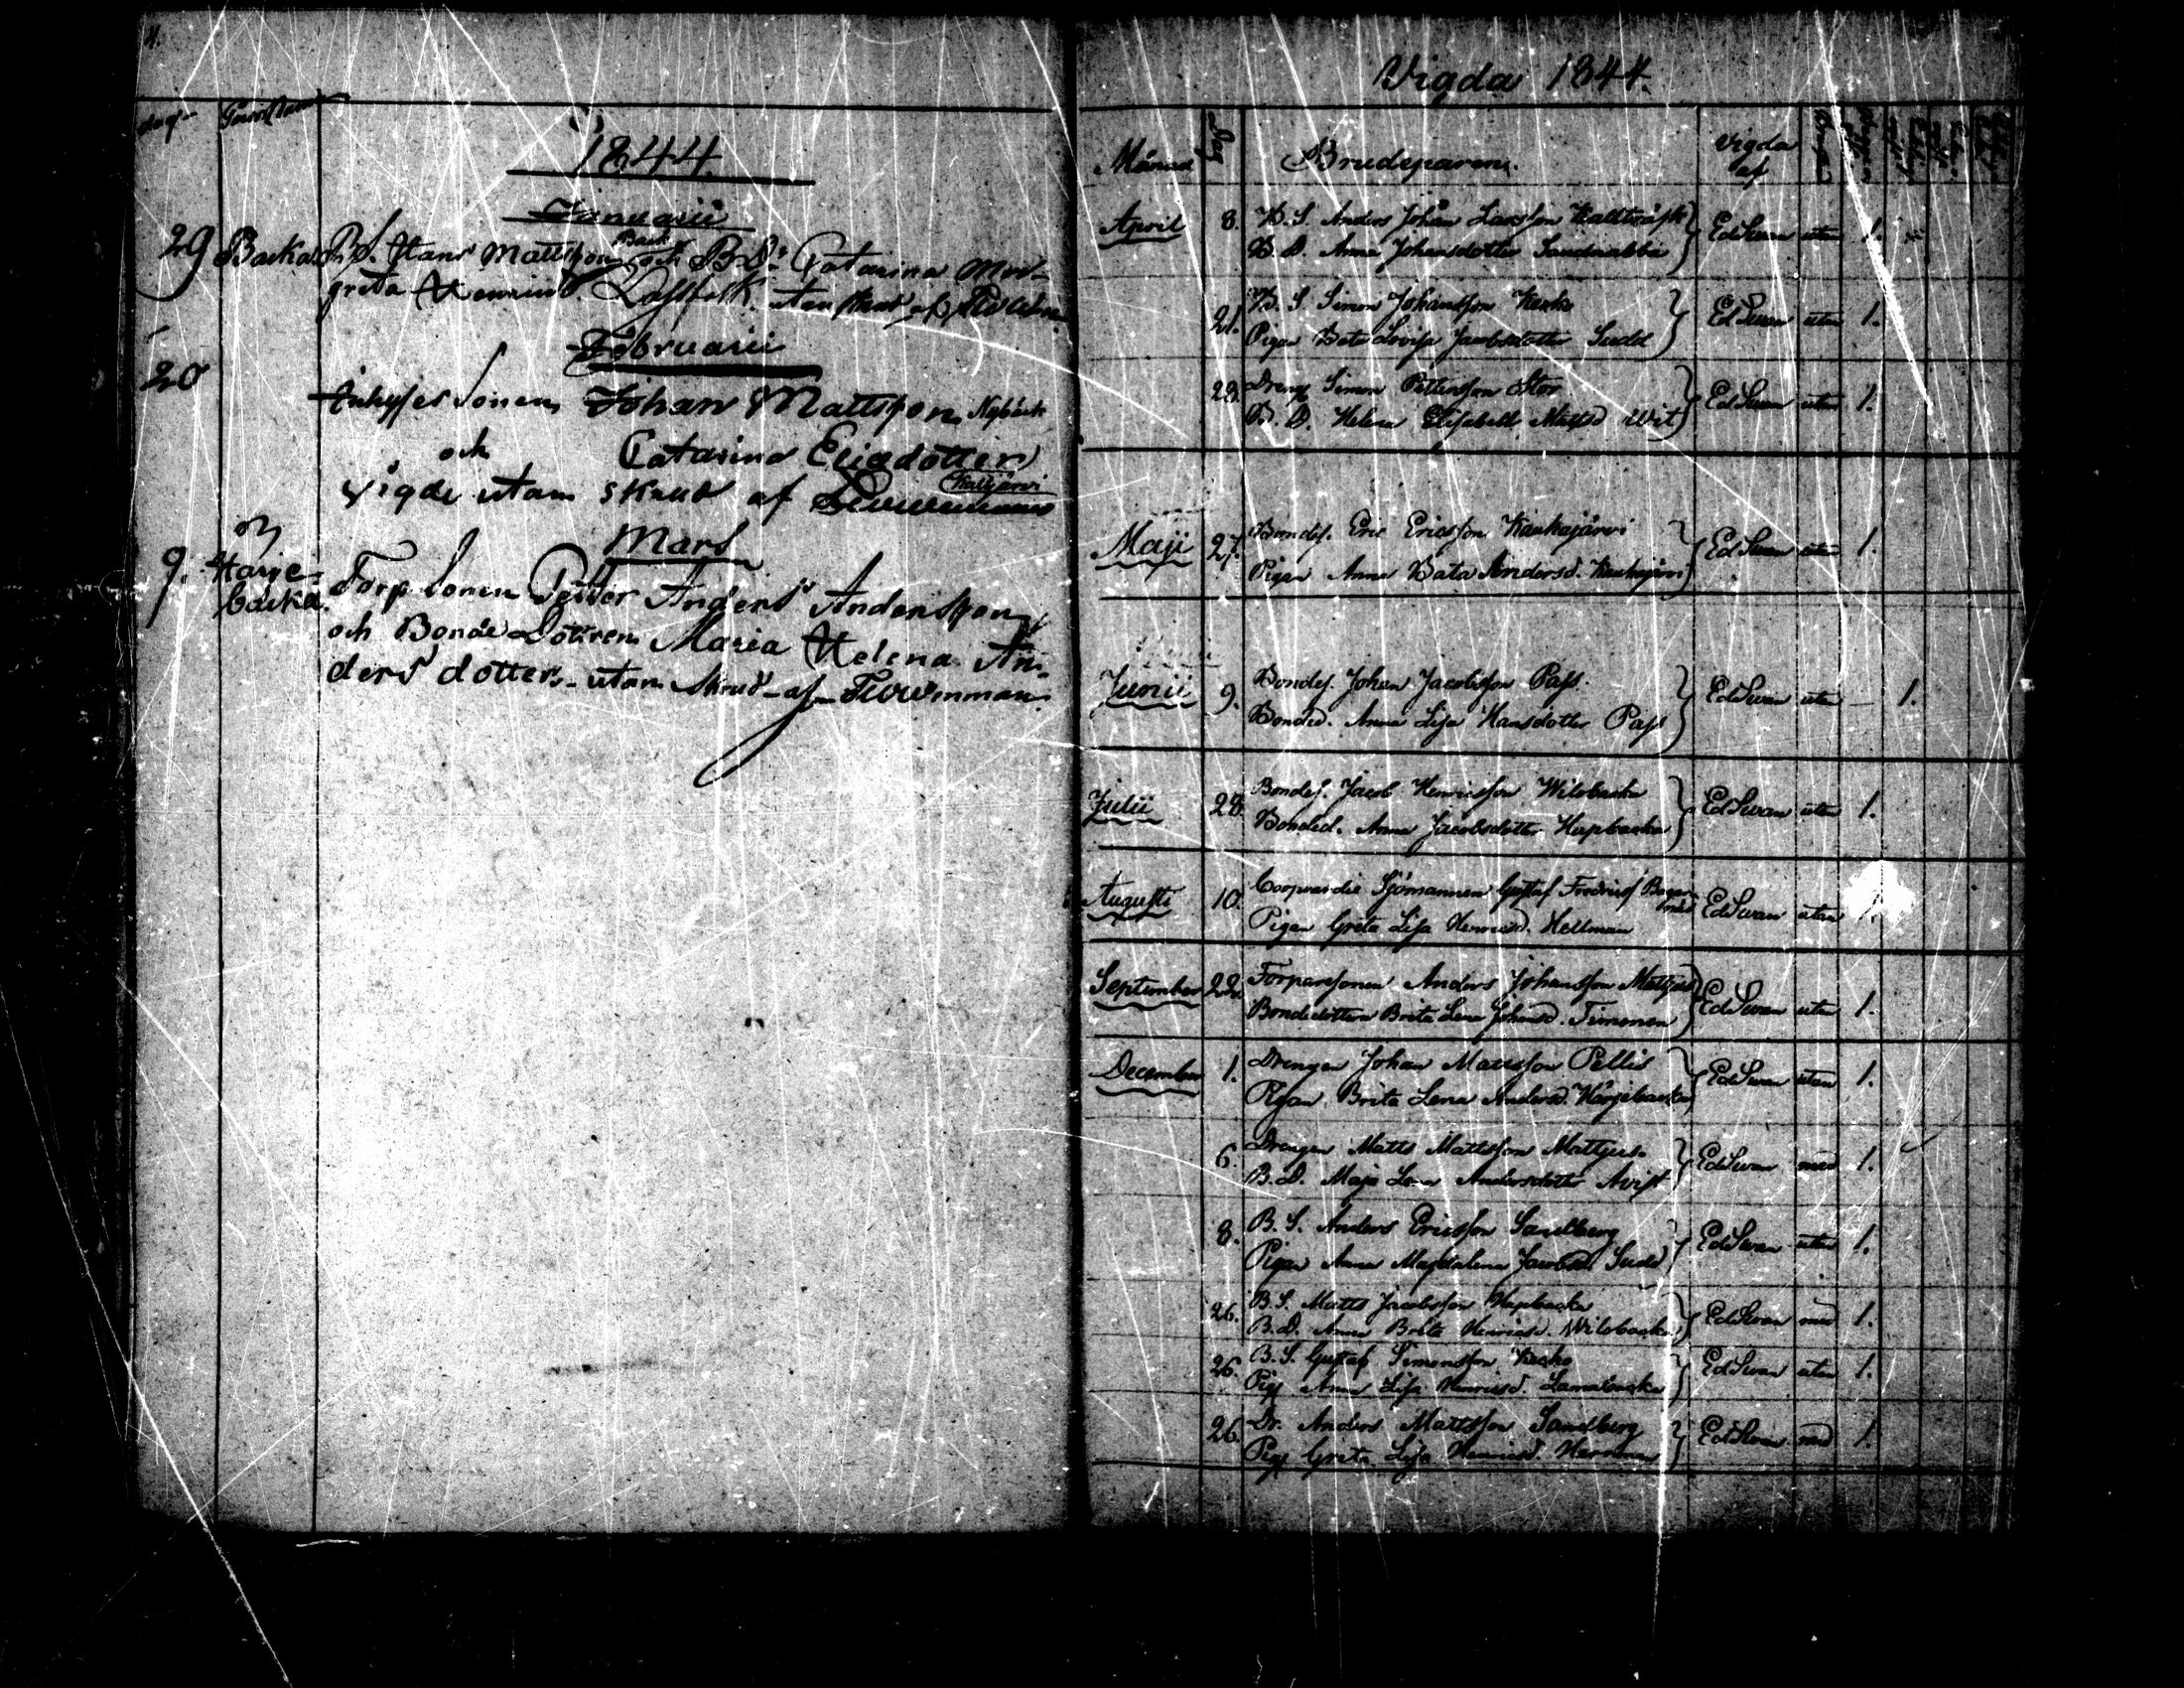 1844
Januarii
29 Backa B.S. Hans Mattsson Back och B.D. Catarina Mar-
greta Henriksd. utan skrud af
Februarii
20
Inhyses Sonen Johan Mattsson Nybäck
och Catarina Ericsdotter
vigde utan skrud af
Mars
9. Härje-
backa Torp Sonen Petter Anders Andersson
och Bonde Dottren Maria Helena An-
ders dotter - utan skrud af
Vigda 1844.
Månad Dag Brudeparen. Vigda
af
April 8. B. S. Anders Johan Larsson Kalltträsk
B. D. Anna Johansdotter Sandnabba EdSwan utan 1.
21. B. S. Simon Johansson Kecko
Pigan Beata Lovisa Jacobsdotter Sudd EdSwan utan 1.
28. Dreng Simon Pettersson Stor
B. D. Helena Elisabeth Mattsd Wit EdSwan utan 1.
Maji 27. Bondes. Eric Ericsson Kauhajärvi
Pigan Anna Beata Andersd. Kauhajärvi EdSwan utan 1.
Junii 9. Bondes. Johan Jacobsson Pass.
Bonded. Anna Lisa Hansdotter Pass EdSwan utan — 1.
Julii 28. Bondes. Jacob Henricsson Wilobacka
Bonded. Anna Jacobsdotter Hupbacka EdSwan utan 1.
Augusti 10. Coopvardie Sjömannen Gustaf Fredricss
Pigan Greta Lisa Henricsd. Hellman EdSwan utan
September 22. Torparesonen Anders Johansson Mattjus
Bondedottren Brita Lena Johansd. Timonen EdSwan utan 1.
December 1. Drengen Johan Mattsson Pellis
Pigan Brita Lena Andersd. Härjebacka EdSwan utan 1.
6. Drengen Matts Mattsson Mattjus.
B. D. Maja Lena Andersdotter Avist EdSwan med 1.
8. B. S. Anders Ericsson Sandberg
Pigan Anna Magdalena Jacobsd Sudd EdSwan utan 1.
26. B.S. Matts Jacobsson Hupbacka
B.D. Anna Brita Henricsd. Wilobacka EdSwan med 1.
26. B. S. Gustaf Simonsson Kecko
Pig Anna Lisa Henricsd. EdSwan utan 1.
26. Dr. Anders Mattsson Sandberg
Pig Greta Lisa Henricsd. Herrman EdSwan med 1.